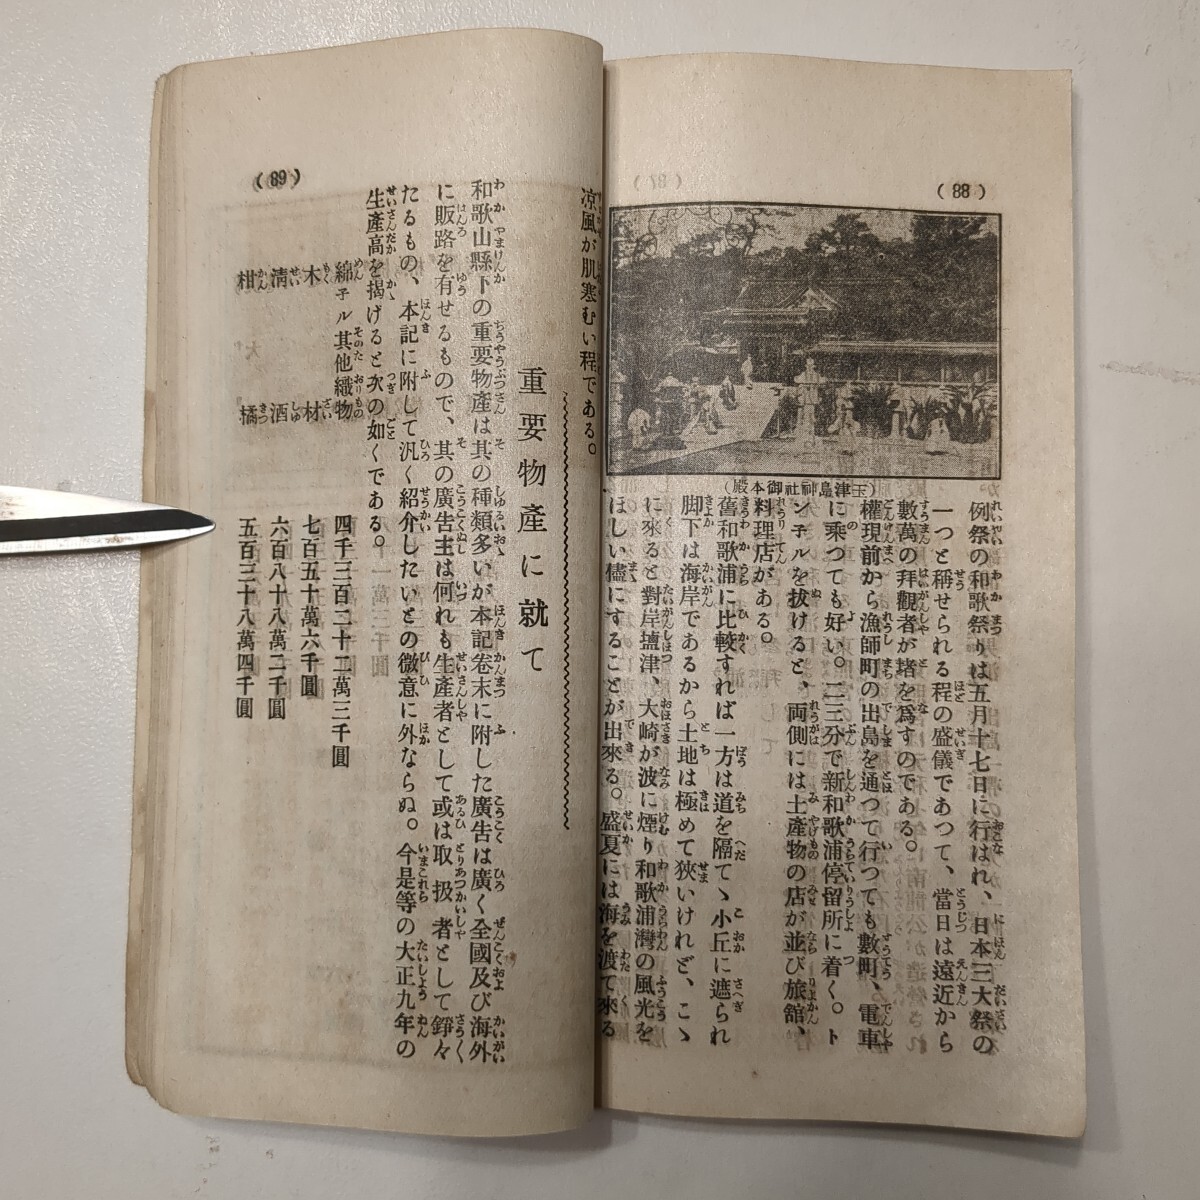 (88)
(玉津島神社御本殿)
例祭の和歌祭りは五月十七日に行はれ、日本三大祭の
一つと稱せられる程の盛儀であつて、當日は遠近から
數萬の拜觀者が堵を爲すのである。
權現前から漁師町の出島を通つて行つても數町、電車
に乘つても好い。二三分で新和歌浦停留所に着く。ト
ンネルを拔けると、兩側には土產物の店が並び旅館、
料理店がある。
舊和歌浦に比較すれば一方は道を隔てゝ小丘に遮られ
脚下は海岸であるから土地は極めて狹いけれど、こゝ
に來ると對岸塩津、大崎が波に煙り和歌浦灣の風光を
ほしい儘にすることが出來る。盛夏には海を渡て來る
(89)
凉風が肌寒むい程である。
重要物產に就て
和歌山縣下の重要物產は其の種類多いが本記卷末に附した廣吿は廣く全國及び海外
に販路を有せるもので、其の廣吿主は何れも生產者として或は取扱者として錚々
たるもの、本記に附して汎く紹介したいとの微意に外ならぬ。今是等の大正九年の
生產高を揭げると次の如くである。
綿子ル其他織物 四千三百二十二萬三千圓
木材 七百五十萬六千圓
淸酒 六百八十八萬二千圓
柑橘 五百三十八萬四千圓